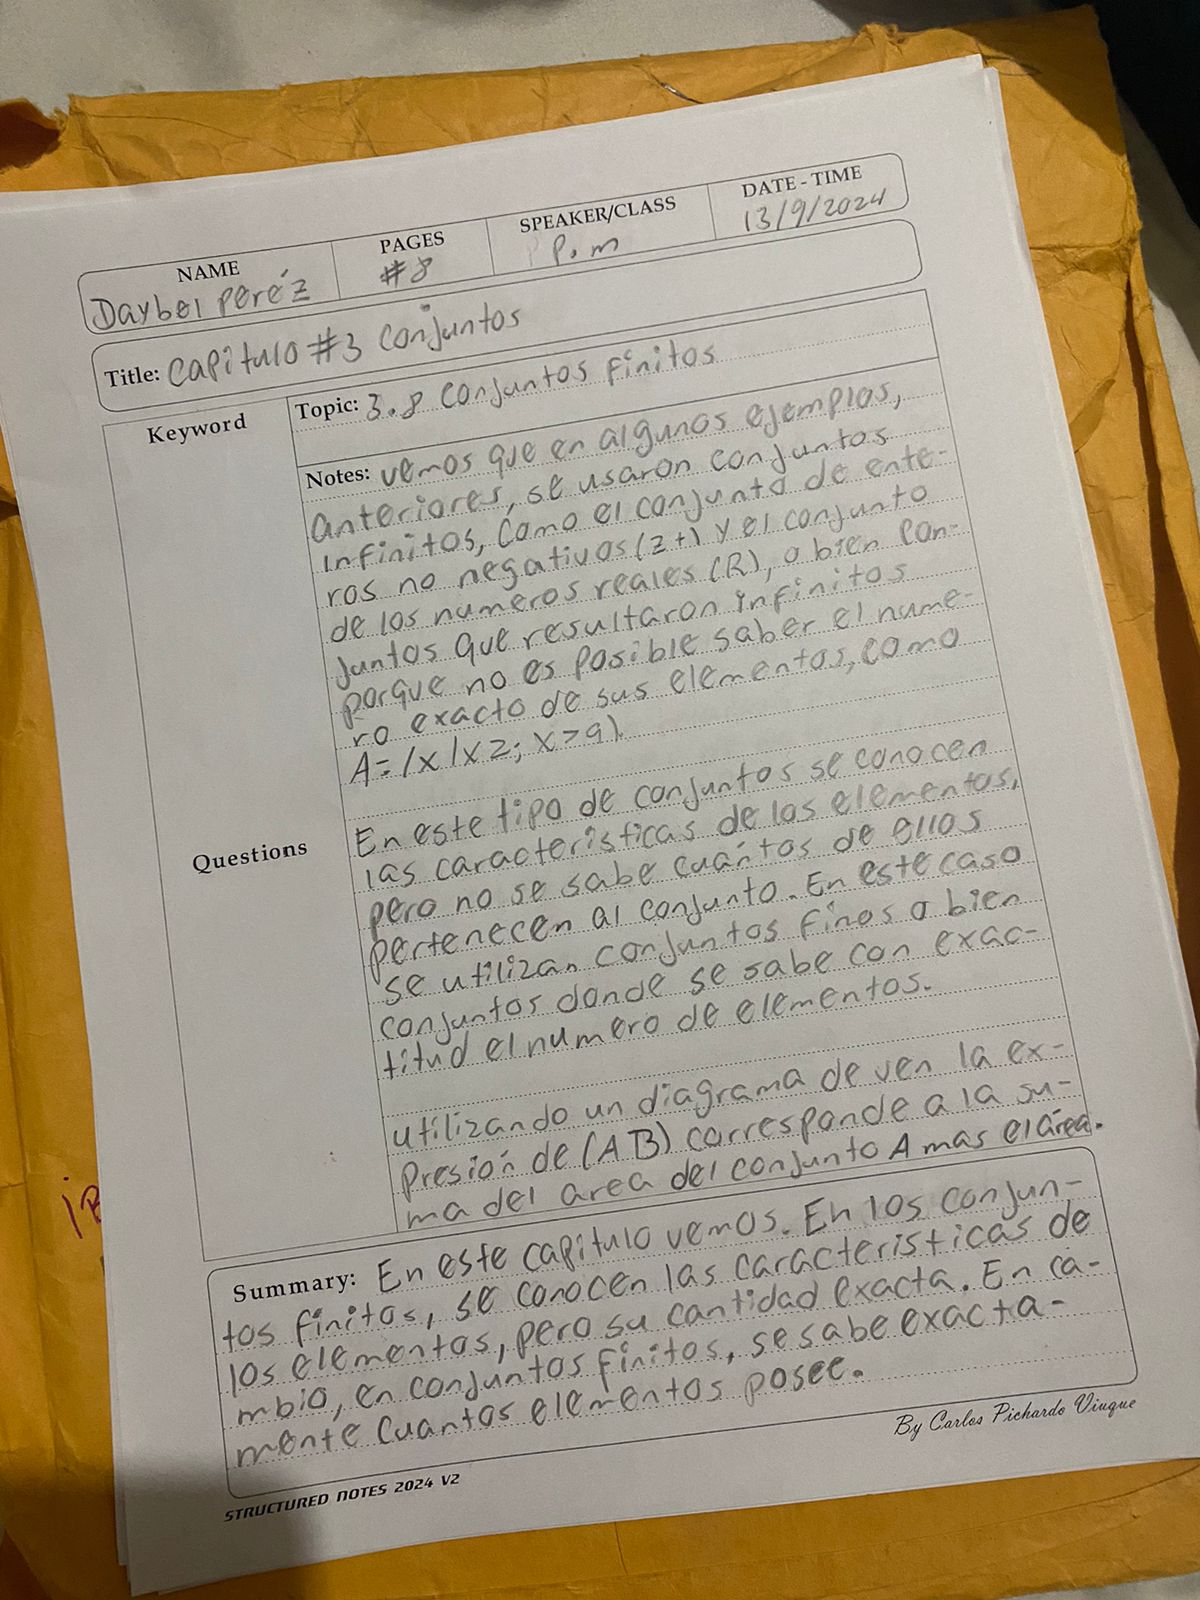 NAME
Daybel Peréz
PAGES
#8
SPEAKER/CLASS
P.m
DATE - TIME
13/9/2024
Title: Capitulo #3 Conjuntos
Keyword
Topic: 3.8 Conjuntos Finitos
Notes: vemos que en algunos ejemplos,
anteriores, se usaron conjuntos
infinitos, Como el conjunto de ente-
ros no negativos (z+) y el conjunto
de los numeros reales (R), o bien Con-
juntos que resultaron infinitos
porque no es posible saber el nume-
ro exacto de sus elementos, como
A= /x | x z; x > 9).
Questions
En este tipo de conjuntos se conocen
las caracteristicas de los elementos,
pero no se sabe cuántos de ellos
pertenecen al conjunto. En este caso
se utilizan conjuntos finos o bien
conjuntos donde se sabe con exac-
titud el numero de elementos.
utilizando un diagrama de ven la ex-
presión de (A B) corresponde a la su-
ma del area del conjunto A mas el área.
Summary: En este capitulo vemos. En los conjun-
tos finitos, se conocen las caracteristicas de
los elementos, pero su cantidad exacta. En ca-
mbio, en conjuntos finitos, se sabe exacta-
mente cuantos elementos posee.
By Carlos Pichardo Viuque
STRUCTURED NOTES 2024 V2